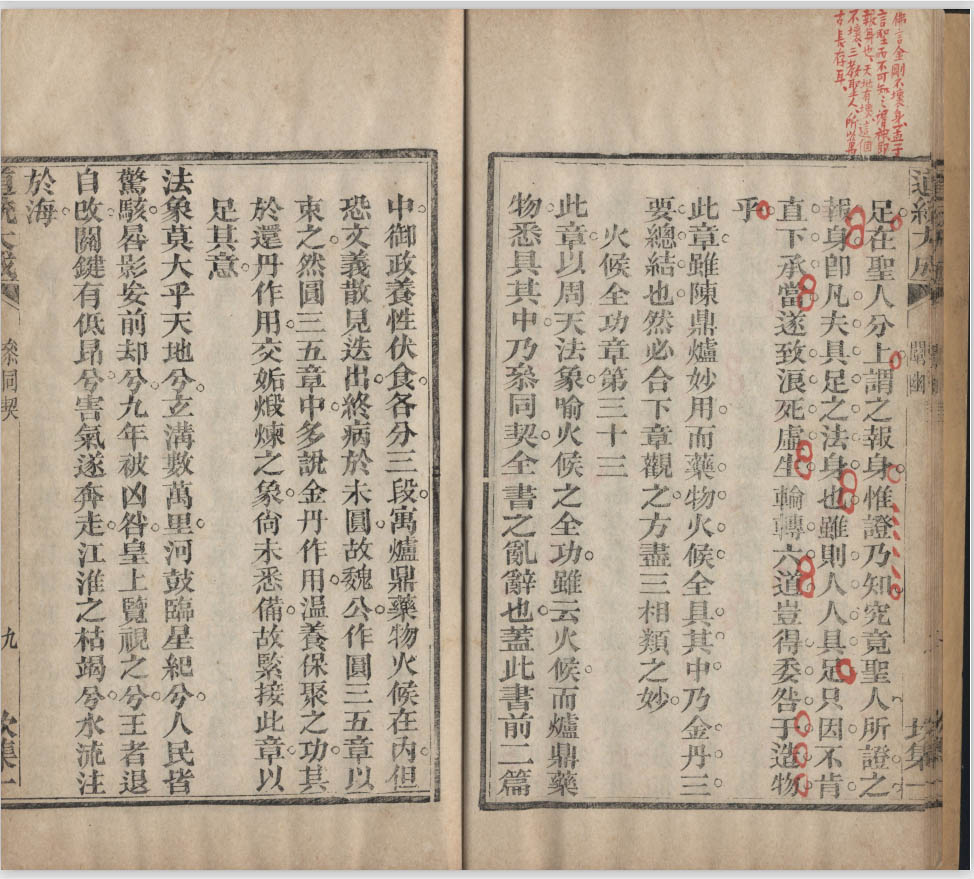 佛言金剛不壞身孟子
言聖而不可知之謂神即
報身也天地有壞這個
不壞三教聖人所以萬
古長存耳
足在聖人分上謂之報身惟證乃知究竟聖人所證之
報身卽凡夫具足之法身也雖則人人具足只因不肯
直下承當遂致浪死虛生輪轉六道豈得委咎于造物
乎
此章雖陳鼎爐妙用而藥物火候全具其中乃金丹三
要總結也然必合下章觀之方盡三相類之妙
火候全功章第三十三
此章以周天法象喻火候之全功雖云火候而爐鼎藥
物悉具其中乃叅同契全書之亂辭也蓋此書前二篇
中御政養性伏食各分三段寓爐鼎藥物火候在內但
恐文義散見迭出終病於未圓故魏公作圓三五章以
束之然圓三五章中多說金丹作用温養保聚之功其
於還丹作用交姤煅煉之象尙未悉備故緊接此章以
足其意
法象莫大乎天地兮玄溝數萬里河鼓臨星紀兮人民皆
驚駭晷影妄前却兮九年被凶咎皇上覽視之兮王者退
自改關鍵有低昂兮害氣遂奔走江淮之枯竭兮水流注
於海
道統大成
叅同契
九